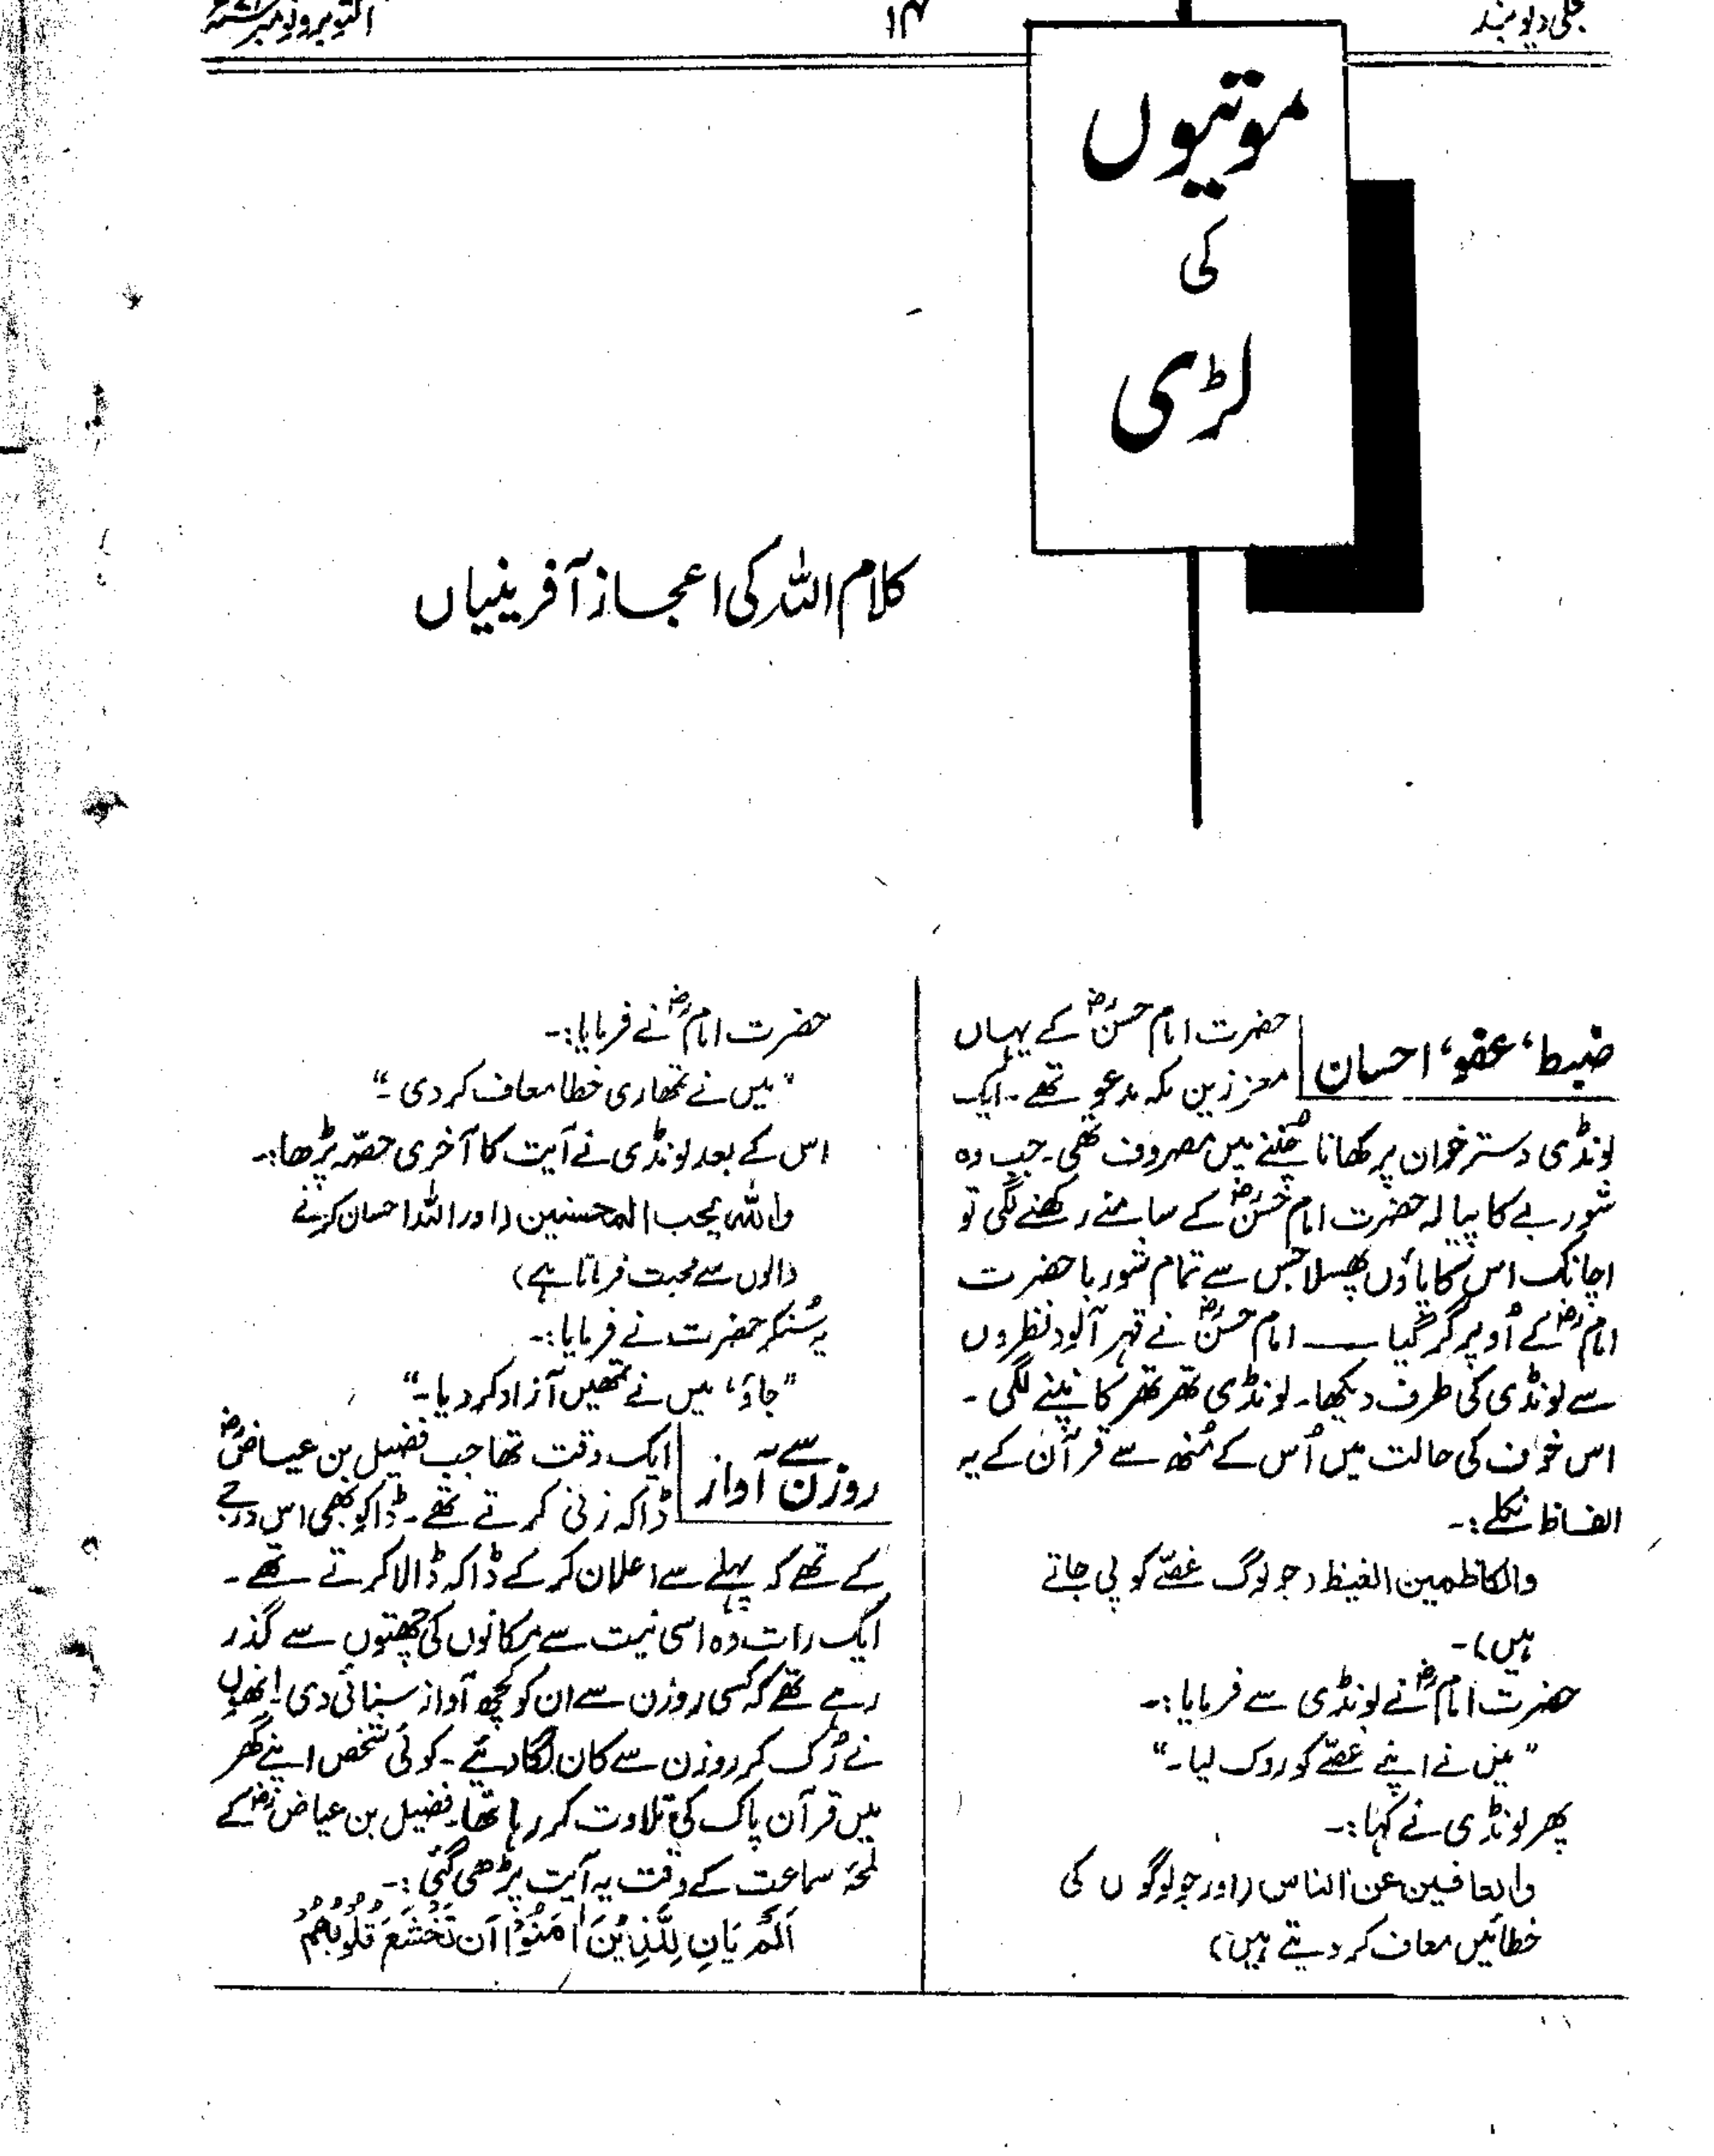 تجلی دیوبند
۱۴
اکتوبر و نومبر
موتیوں
کی
لڑی
کلام اللہ کی اعجاز آفرینیاں
ضبط، عفو، احسان
حضرت امام حسنؓ کے یہاں
معززین مکہ مدعو تھے۔ ایک
لونڈی دسترخوان پر کھانا چُننے میں مصروف تھی۔ جب وہ
شوربے کا پیالہ حضرت امام حسنؓ کے سامنے رکھنے لگی تو
اچانک اس کا پاؤں پھسلا جس سے تمام شوربا حضرت
امامؓ کے اُوپر گر گیا — امام حسنؓ نے قہر آلود نظروں
سے لونڈی کی طرف دیکھا۔ لونڈی تھر تھر کانپنے لگی۔
اس خوف کی حالت میں اُس کے مُنھ سے قرآن کے یہ
الفاظ نکلے:۔
والکاظمین الغیظ (جو لوگ غصّے کو پی جاتے
ہیں)۔
حضرت امامؓ نے لونڈی سے فرمایا:۔
"میں نے اپنے غصّے کو روک لیا۔"
پھر لونڈی نے کہا:۔
والعافین عن الناس (اور جو لوگوں کی
خطائیں معاف کر دیتے ہیں)
حضرت امامؓ نے فرمایا:۔
"میں نے تمھاری خطا معاف کر دی۔"
اس کے بعد لونڈی نے آیت کا آخری حصّہ پڑھا:۔
واللہ یحب المحسنین (اور اللہ احسان کرنے
والوں سے محبت فرماتا ہے)
یہ سُنکر حضرت نے فرمایا:۔
"جاؤ، میں نے تمھیں آزاد کر دیا۔"
روزن سے آواز
ایک وقت تھا جب فضیل بن عیاضؓ
ڈاکہ زنی کرتے تھے۔ ڈاکو بھی اس درجے
کے تھے کہ پہلے سے اعلان کر کے ڈاکہ ڈالا کرتے تھے۔
ایک رات وہ اسی نیت سے مکانوں کی چھتوں سے گذر
رہے تھے کہ کسی روزن سے ان کو کچھ آواز سنائی دی! انھوں
نے رُک کر روزن سے کان لگا دیئے۔ کوئی شخص اپنے گھر
میں قرآن پاک کی تلاوت کر رہا تھا۔ فضیل بن عیاضؓ کے
لمحۂ سماعت کے وقت یہ آیت پڑھی گئی:۔
اَلَمْ یَانِ لِلَّذِیْنَ اٰمَنُوْا اَنْ تَخْشَعَ قُلُوْبُهُمْ